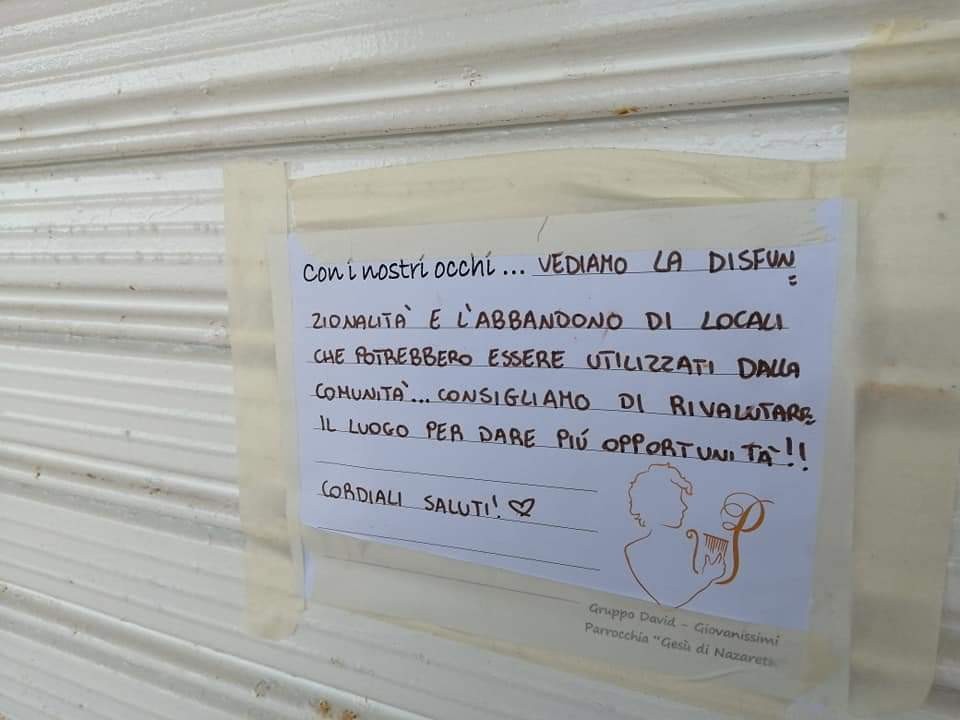 Con i nostri occhi... VEDIAMO LA DISFUN
ZIONALITÀ E L'ABBANDONO DI LOCALI
CHE POTREBBERO ESSERE UTILIZZATI DALLA
COMUNITÀ... CONSIGLIAMO DI RIVALUTARE
IL LUOGO PER DARE PIÚ OPPORTUNITÀ!!
CORDIALI SALUTI! ♡
Gruppo David - Giovanissimi
Parrocchia "Gesù di Nazaret"